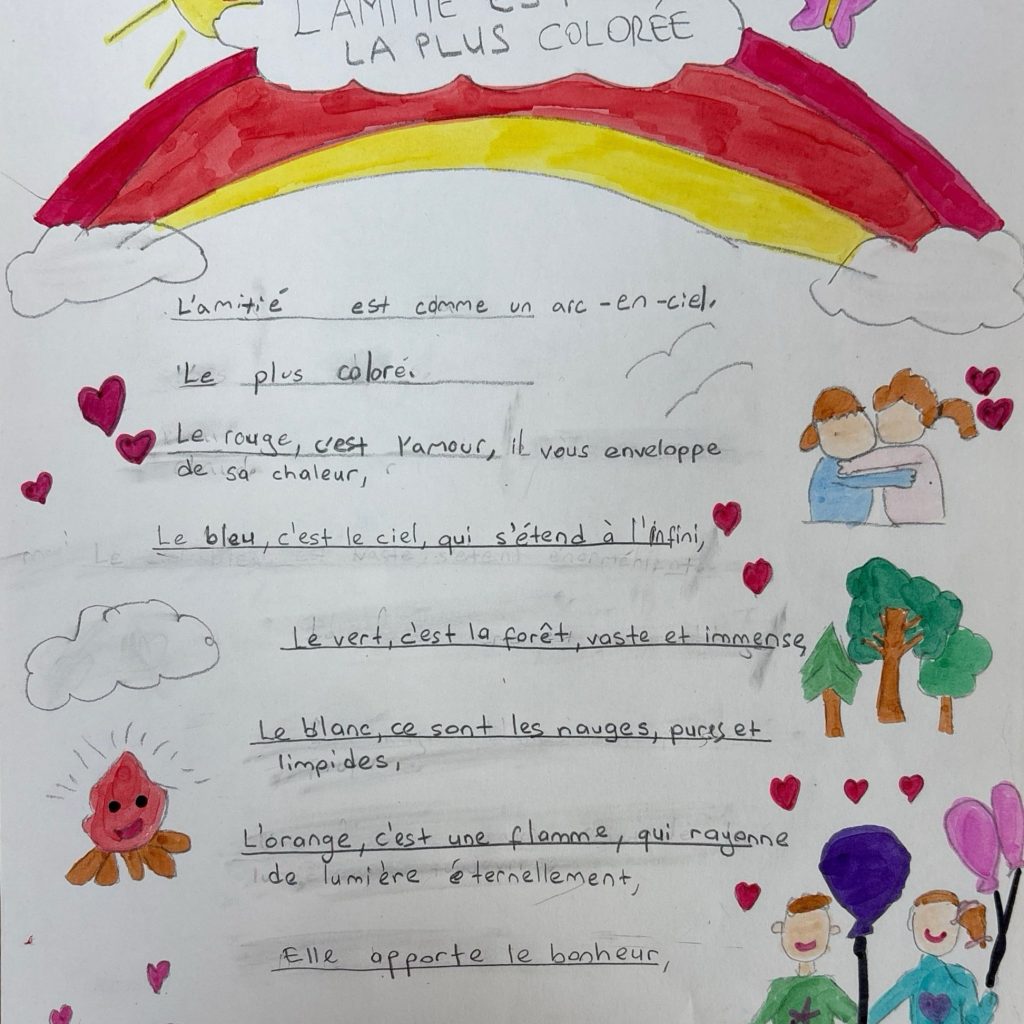 L'AMITIÉ
LA PLUS COLORÉE
L'amitié est comme un arc-en-ciel.
Le plus coloré.
Le rouge, c'est l'amour, il vous enveloppe
de sa chaleur,
Le bleu, c'est le ciel, qui s'étend à l'infini,
Le vert, c'est la forêt, vaste et immense,
Le blanc, ce sont les nauges, pures et
limpides,
L'orange, c'est une flamme, qui rayonne
de lumière éternellement,
Elle apporte le bonheur,